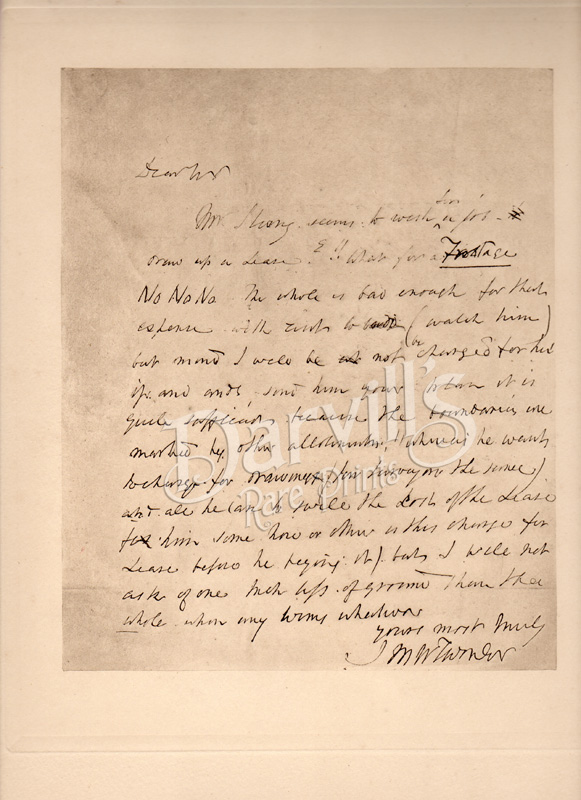 Dear Sir
Mr Strong seems to wish for a job - to
draw up a Lease !! what for a Frontage
No No No The whole is bad enough for that
expense with (watch him)
but mind I will be not charged for his
ifs and ands send him your plan it is
quite sufficient because the boundaries are
marked by other allotments, whereas he wants
to charge for drawings the same)
and all he can to swell the Cost of the Lease
for him some how or other is this charge for
Lease before he begins it) but I will not
ask of one inch of ground than the
whole upon any terms whatever
yours most truly
J M W Turner
Darvill's
Rare Prints